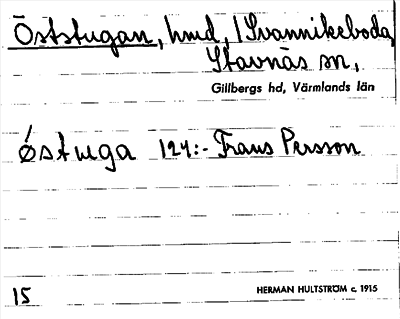 Öststugan, hmd, / Svannikeboda,
Stavnäs sn,
Gillbergs hd, Värmlands län
östuga 124:- Frans Persson
15 HERMAN HULTSTRÖM c. 1915